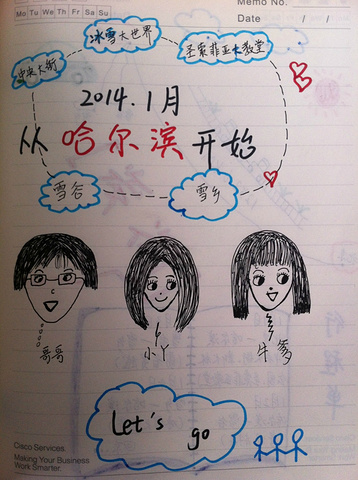 Mo Tu We Th Fr Sa Su
Memo No.
Date / /
冰雪大世界
圣索菲亚大教堂
中央大街
2014.1月
从哈尔滨开始
雪谷
雪乡
哥哥
小丫
牛爹
行程单
Let's go
Cisco Services.
Making Your Business
Work Smarter.